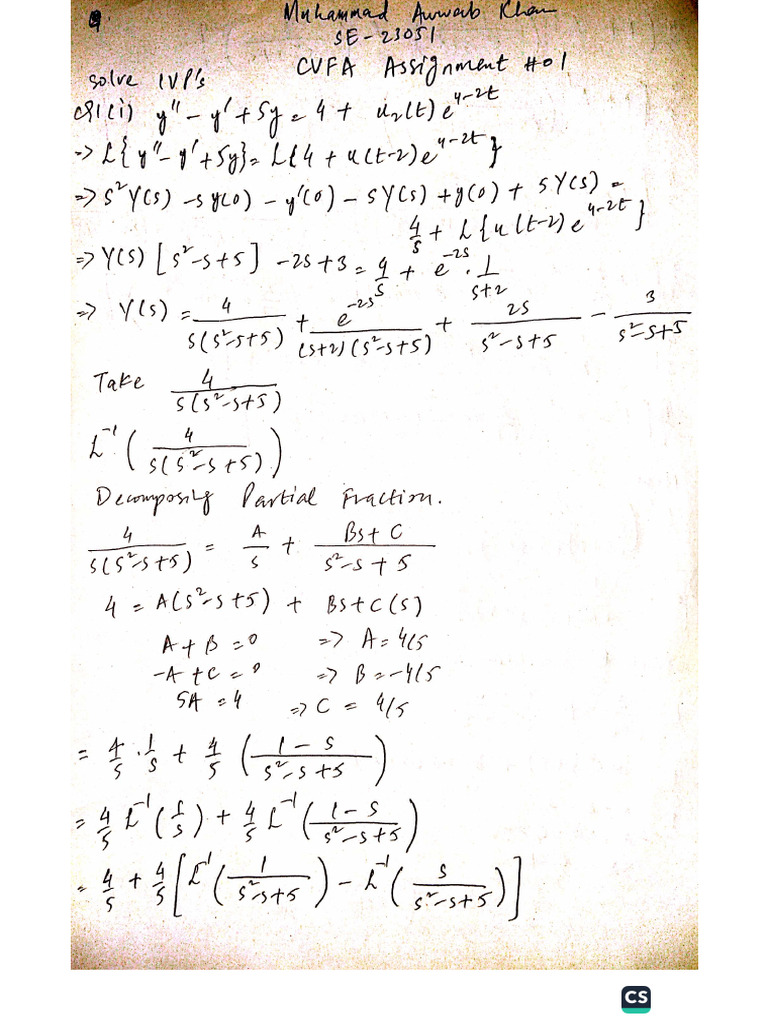 Muhammad Awwab Khan
SE-23051
CVFA Assignment #01
Solve IVP's
Q1(i) y'' - y' + 5y = 4 + u₂(t)e^{4-2t}
=> L{y'' - y' + 5y} = L{4 + u(t-2)e^{4-2t}}
=> s²Y(s) - sy(0) - y'(0) - sY(s) + y(0) + 5Y(s) =
4/s + L{u(t-2)e^{4-2t}}
=> Y(s)[s²-s+5] - 2s + 3 = 4/s + e^{-2s} · 1/(s+2)
=> Y(s) = 4/(s(s²-s+5)) + e^{-2s}/((s+2)(s²-s+5)) + 2s/(s²-s+5) - 3/(s²-s+5)
Take 4/(s(s²-s+5))
L⁻¹(4/(s(s²-s+5)))
Decomposing Partial Fraction.
4/(s(s²-s+5)) = A/s + (Bs+C)/(s²-s+5)
4 = A(s²-s+5) + Bs+C(s)
A+B=0 => A=4/5
-A+C=0 => B=-4/5
5A=4 => C = 4/5
= 4/5 · 1/s + 4/5 ((1-s)/(s²-s+5))
= 4/5 L⁻¹(1/s) + 4/5 L⁻¹((1-s)/(s²-s+5))
= 4/5 + 4/5 [L⁻¹(1/(s²-s+5)) - L⁻¹(s/(s²-s+5))]
CS